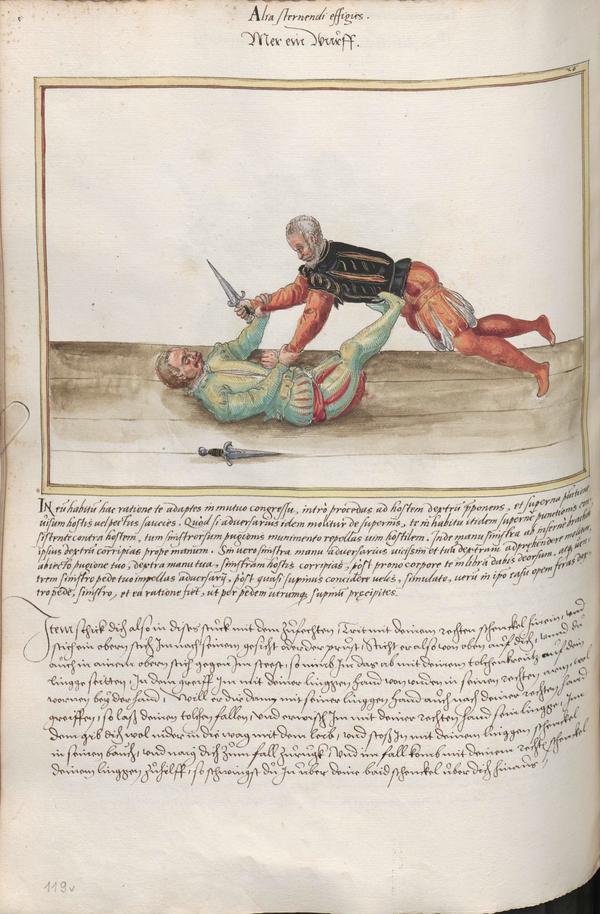 Alia sternendi effigies.
Mer ein Wurff.
IN eũ habitũ hac ratione te adaptes in mutuo congressu, intrò procedas ad hostem dextrũ p̃ponens, et superna
uisum hostis uel pectus saucies. Quod si aduersarius idem molitur de supernis, te in habitu itidem superne punctionis
sistente contra hostem, tum sinistrorsum pugionis munimento repellas uim hostilem. Inde manu sinistra ab inferne brachium
ipsius dextrũ corripias prope manum. Sin uero sinistra manu aduersarius uicissim et tuã dextram adprehendere
abiecto pugione tuo, dextra manu tua, sinistram hostis corripias, post prono corpore te in librã dabis deorsum, atq̃
trem sinistro pede tuo impellas aduersarij, post quasi supinus concidere uelis, simulato, uerũ in ipo casu opem feras
tro pede, sinistro, et ea ratione fiet, ut per pedem utrumq̃ supinũ p̃cipites.
Item schick dich also in dises stuck mit dem zufechten, Trit mit deinem rechten schenckel hinein, und
stich ein obern stich Im nach seinem gesicht oder der prust, Sticht er also von oben auf dich, unnd du
auch in ainem obern stich gegen Im steest, so nimb Im das ab mit deinem tolchenkreitz auf dein
lingge seitten, In dem greiff Im mit deiner linggen hand von unden in seinen rechten arm, wol
vornen bey der hand, Will er dir dann mit seiner linggen hand auch nach deiner rechten hand
greiffen, so laß deinen tolchen fallen, und erwisch Im mit deiner rechten hand sein lingge, Im
dem gib dich wol nider in die wag mit dem leib, und stoß In mit deinem linggen schenckel
in seinen bauch, und naig dich zum fall zuruck, und im fall komb mit deinem recht schenckel
deinem linggen zuhilff, so schwingst du In uber deine baid schenckel uber dich hinaus,
119v